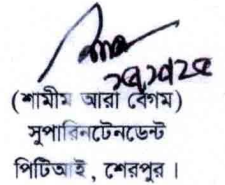 (শামীম আরা বেগম)
সুপারিনটেনডেন্ট
পিটিআই, শেরপুর।